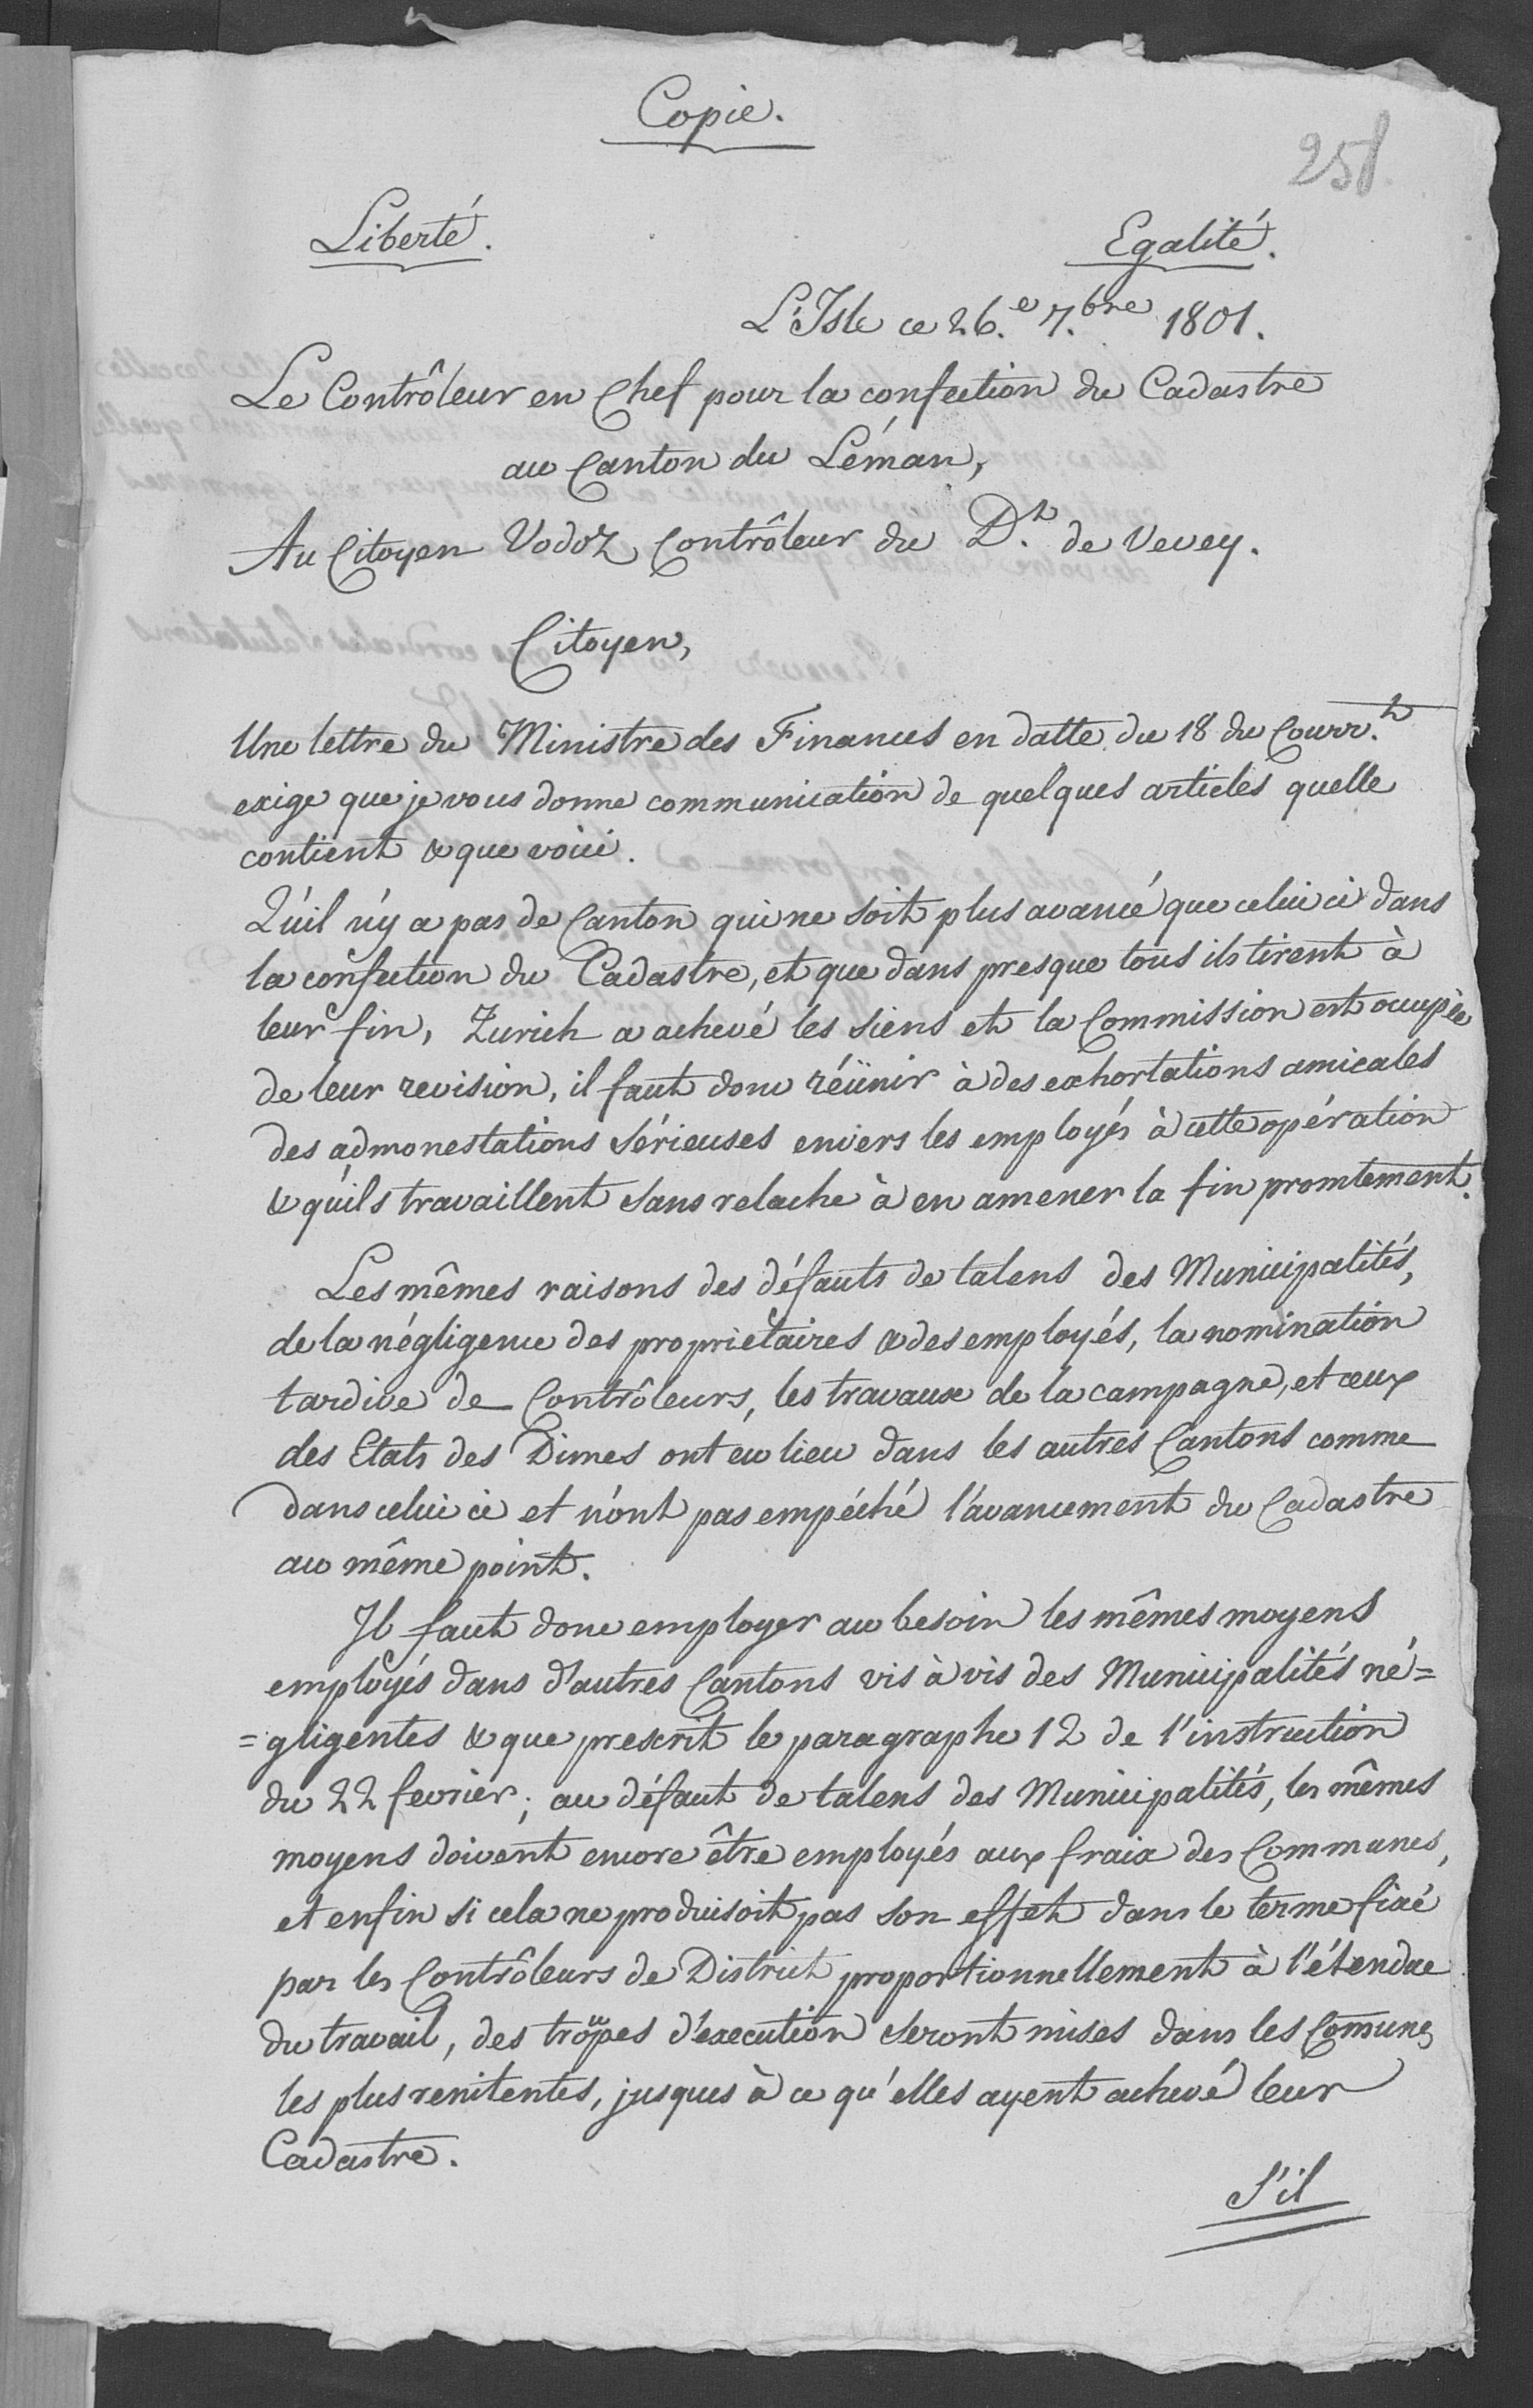 Copie.
258
Liberté.
Egalité.
L'Isle ce 26.e 7.bre 1801.
Le Contrôleur en Chef pour la confection du Cadastre
au Canton du Léman,
Au Citoyen Vodoz, Contrôleur du D.t de Vevey.
Citoyen,
Une lettre du Ministre des Finances en datte du 18 du Courr.t
exige que je vous donne communication de quelques articles quelle
contient & que voici.
Qu'il n'y a pas de Canton qui ne soit plus avancé que celui ci dans
la confection du Cadastre, et que dans presque tous ils tirent à
leur fin, Zurich a achevé les siens et la Commission est occupée
de leur revision, il faut donc réünir à des exhortations amicales
des admonestations sérieuses envers les employés à cette opération
& qu'ils travaillent sans relache à en amener la fin promtement.
Les mêmes raisons des défauts de talens des Municipalités,
de la négligence des propriétaires & des employés, la nomination
tardive de Contrôleurs, les travaux de la campagne, et ceux
des Etats des Dimes ont eu lieu dans les autres Cantons comme
dans celui ci et n'ont pas empéché l'avancement du Cadastre
au même point.
Il faut donc employer au besoin les mêmes moyens
employés dans d'autres Cantons vis à vis des Municipalités né=
=gligentes & que prescrit le paragraphe 12 de l'instruction
du 22 fevrier; au défaut de talens des Municipalités, les mêmes
moyens doivent encore être employés aux fraix des Communes,
et enfin si cela ne produisoit pas son effet dans le terme fixé
par les Contrôleurs de District proportionnellement à l'étendue
du travail, des troupes d'execution seront mises dans les Comunes
les plus renitentes, jusques à ce qu'elles ayent achevé leur
Cadastre.
S'il